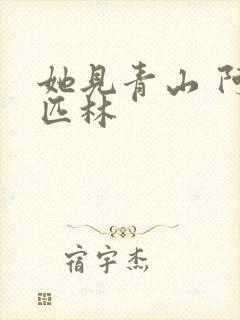 她见青山 阿
匹林
宿宇杰